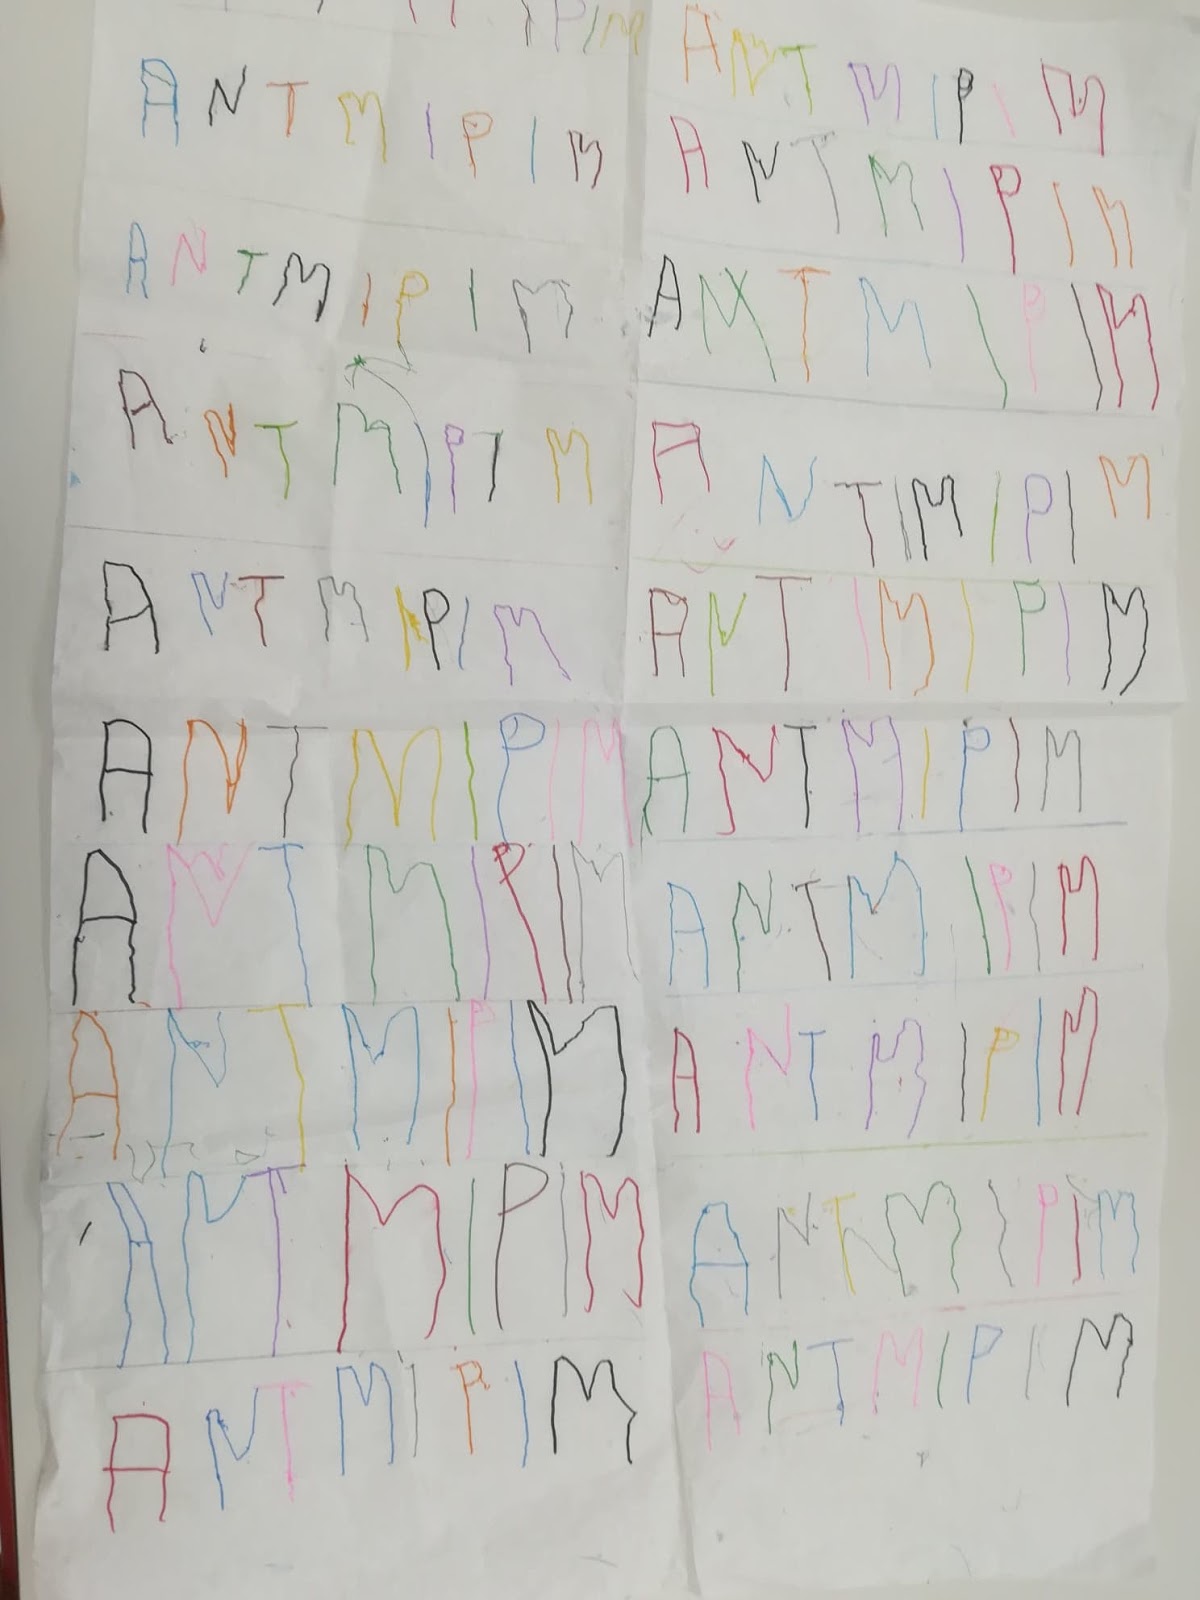 PIM
ANTMIPIM
ANTMIPIM
ANTMIPIM
ANTMIPIM
ANTMIPIM
ANTMIPIM
ANTMIPIM
ANTMIPIM
ANTMIPIM
ANTMIPIM
ANTMIPIM
ANTMIPIM
ANTIMIPIM
ANTIMIPIM
ANTMIPIM
ANTMIPIM
ANTMIPIM
ANTMIPIM
ANTMIPIM